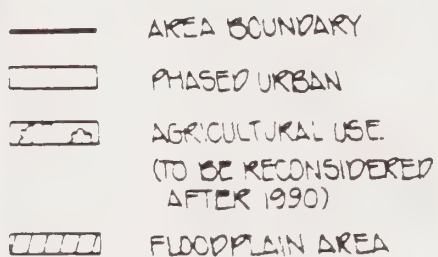 AREA BOUNDARY
PHASED URBAN
AGRICULTURAL USE
(TO BE RECONSIDERED
AFTER 1990)
FLOODPLAIN AREA